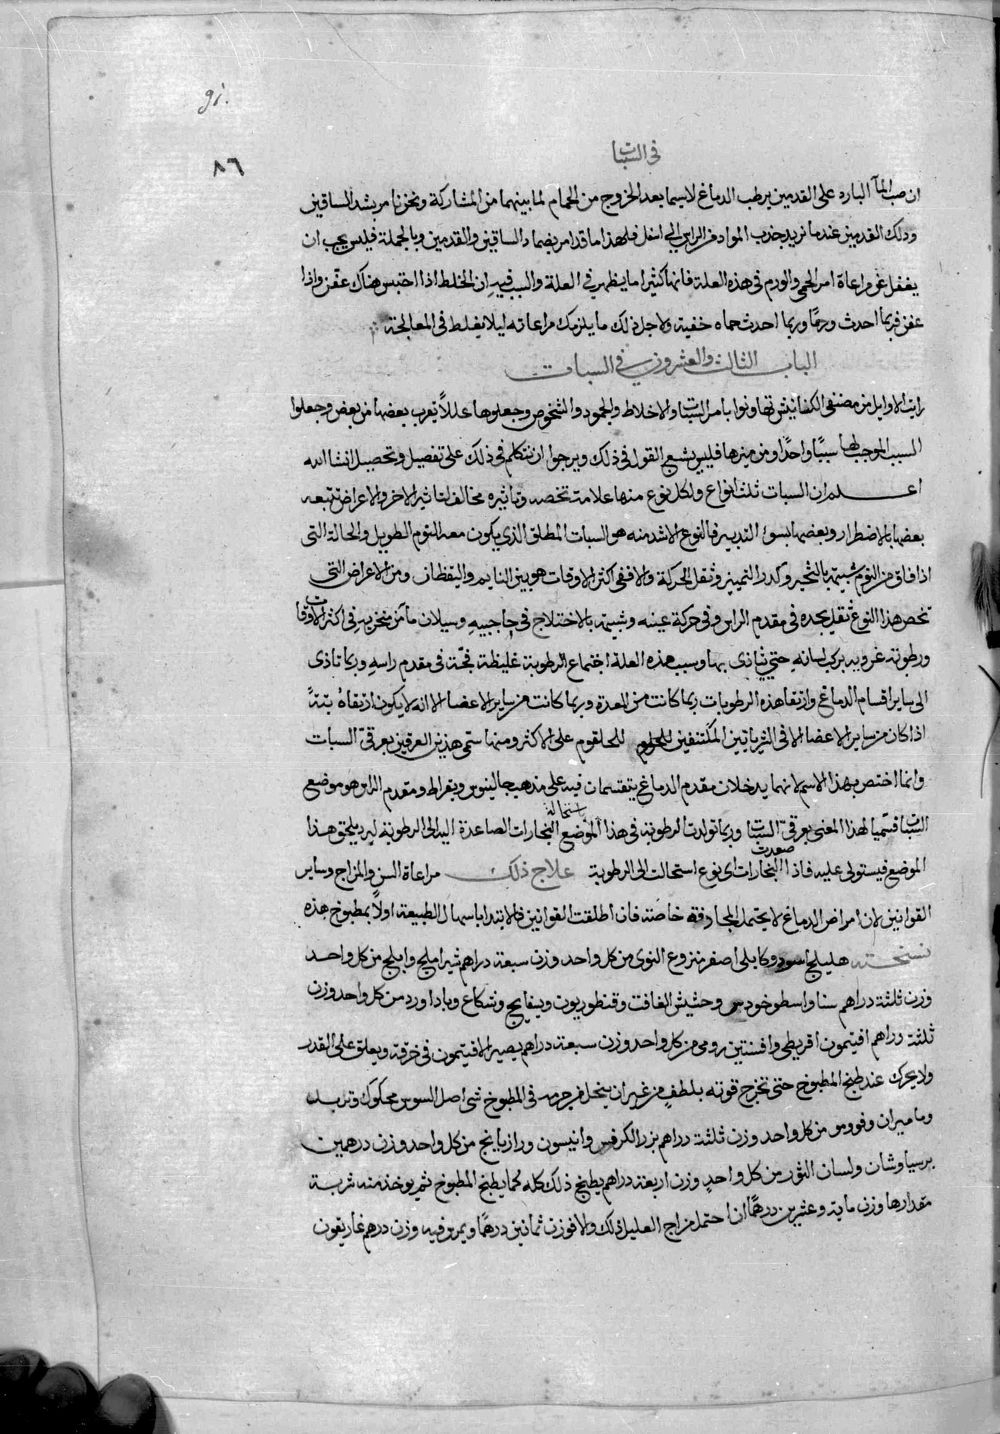 91.
في السبات
٨٦
ان صب المآ البارد على القدمين يرطب الدماغ لا سيما بعد الخروج من الحمام لما بينهما من المشاركة ونحن نامر بشد الساقين
ودلك القدمين عندما نريد جذب المواد من الراس الى اسفل فلهذا ما قد امر بضماد الساقين والقدمين وبالجملة فليس يجب ان
يغفل عن مراعاة امر الحمى والورم في هذه العلة فانها كثيرا ما يظهر في العلة والسبب فيه ان الخلط اذا احتبس هناك عفن واذا
عفن فربما احدث ورمًا وربما احدث حماه خفية ولاجل ذلك ما يلزمك مراعاته ليلا يغلط في المعالجة
الباب الثالث والعشرون في السبات
رايت الاوايل من مصنفي الكنانيش تهاونوا بامر السبات والاخلاط والجمود والشخوص وجعلوها عللاً يقرب بعضها من بعض وجعلوا
السبب الموجب لها سببًا واحدًا ومن ميزها فليس يشبع القول في ذلك ويرجوا ان نتكلم في ذلك على تفصيل وتحصيل انشا الله
اعلم ان السبات ثلث انواع ولكل نوع منها علامة تخصه وتاثيره مخالف لتاثير الاخر والاعراض تتبعه
بعضها بالاضطرار وبعضها بسوء التدبير فالنوع الاشد منه هو السبات المطلق الذي يكون معه النوم الطويل والحالة التي
اذا فاق من النوم شبيته بالتحير وكدر التمييز وثقل الحركة والافة في اكثر الاوقات هو بين النايم واليقظان ومن الاعراض التي
تخص هذا النوع ثقل يجده في مقدم الراس وفي حركة عينه وشبيه بالاختلاج في حاجبيه وسيلان مآ من منخريه في اكثر الاوقات
ورطوبة غروية يركب لسانه حتي يتاذى بها وسبب هذه العلة اجتماع الرطوبة غليظة فجة في مقدم راسه وربما تاذى
الى ساير اقسام الدماغ وارتقا هذه الرطوبات ربما كانت من المعدة وربما كانت من ساير الاعضا الا انه لا يكون ارتقاه بتةً
اذا كان من ساير الاعضا الا في الشريانين المكتنفين للحلقوم على الاكثر ومنها ستمى هذين العرقين بعرقي السبات
وانما اختص بهذا الاسم لانهما يدخلان مقدم الدماغ يتقسمان فيه على مذهب جالينوس وبقراط ومقدم الراس هو موضع
السبات فسميا لهذا المعنى بعرقي السبات وربما تولدت الرطوبة في هذا الموضع باستحالة البخارات الصاعدة اليه الى الرطوبة لبرد يلحق هذا
الموضع فيستولى عليه فاذا صعدت البخارات اى نوع استحالت الى الرطوبة علاج ذلك مراعاة السن والمزاج وساير
القوانين لان امراض الدماغ لا يحتمل المجازفة خاصة فان اطلقت القوانين فالابتدا باسهال الطبيعة اولاً بمطبوخ هذه
نسخته هليلج اسود وكابلى اصفر منزوع النوى من كل واحد وزن سبعة دراهم شير املج وابلج من كل واحد
وزن ثلثة دراهم سنا واسطوخودس وحشيش الغافت وقنطوريون وبسفايج وشكاع وباداورد من كل واحد وزن
ثلثة دراهم افيتمون اقريطى وافسنتين رومى من كل واحد وزن سبعة دراهم يصير الافيتمون في خرقة ويعلق على القدر
ولا يحرك عند طبخ المطبوخ حتى تخرج قوته بلطف من غير ان ينحل من جرمه في المطبوخ شي اصل السوس محكوك وتربد
وماميران وفوو من كل واحد وزن ثلثة دراهم بزر الكرفس وانيسون ورازيانج من كل واحد وزن درهمين
برسياوشان ولسان الثور من كل واحدٍ وزن اربعة دراهم يطبخ ذلك كله كما يطبخ المطبوخ ثم يوخذ منه شربة
مقدارها وزن ماية وعشرين درهمًا ان احتمل مزاج العليل ذلك والا فوزن ثمانين درهمًا ويمرس فيه وزن درهم غاريقون